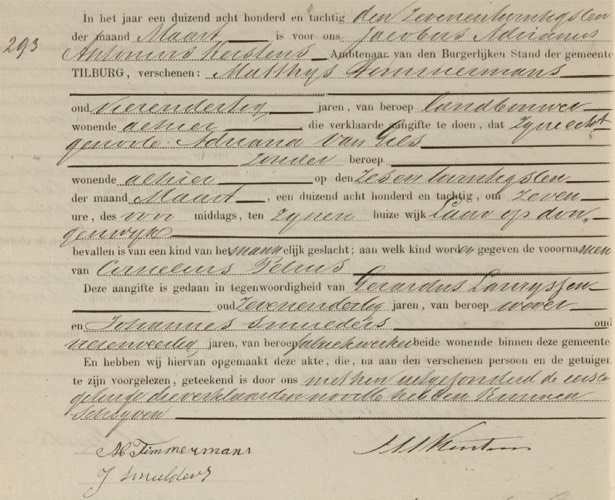 In het jaar een duizend acht honderd en tachtig den Zevenentwintigsten
293
der maand Maart is voor ons Jacobus Adrianus
Antonius Kerstens Ambtenaar van den Burgerlijken Stand der gemeente
TILBURG, verschenen: Matthys Timmermans
oud Vierendertig jaren, van beroep landbouwer
wonende alhier die verklaarde aangifte te doen, dat Zyne echt
genoote Adriana van Gils
zonder beroep
wonende alhier op den Zesentwintigsten
der maand Maart, een duizend acht honderd en tachtig, om Zeven
ure, des voor middags, ten Zynen huize wijk
bevallen is van een kind van het mannelijk geslacht; aan welk kind worden gegeven de voornamen
van Cornelius Petrus
Deze aangifte is gedaan in tegenwoordigheid van Gerardus Lauryssen
oud Zevenenderlig jaren, van beroep wever
en Johannes Smulders oud
jaren, van beroep fabriekwerker beide wonende binnen deze gemeente
En hebben wij hiervan opgemaakt deze akte, die, na aan den verschenen persoon en de getuigen
te zijn voorgelezen, geteekend is door ons met hen uitgezonderd de eerste
getuige die verklaarde niet te hebben kunnen
Schryven
M Timmermans
J Smulders